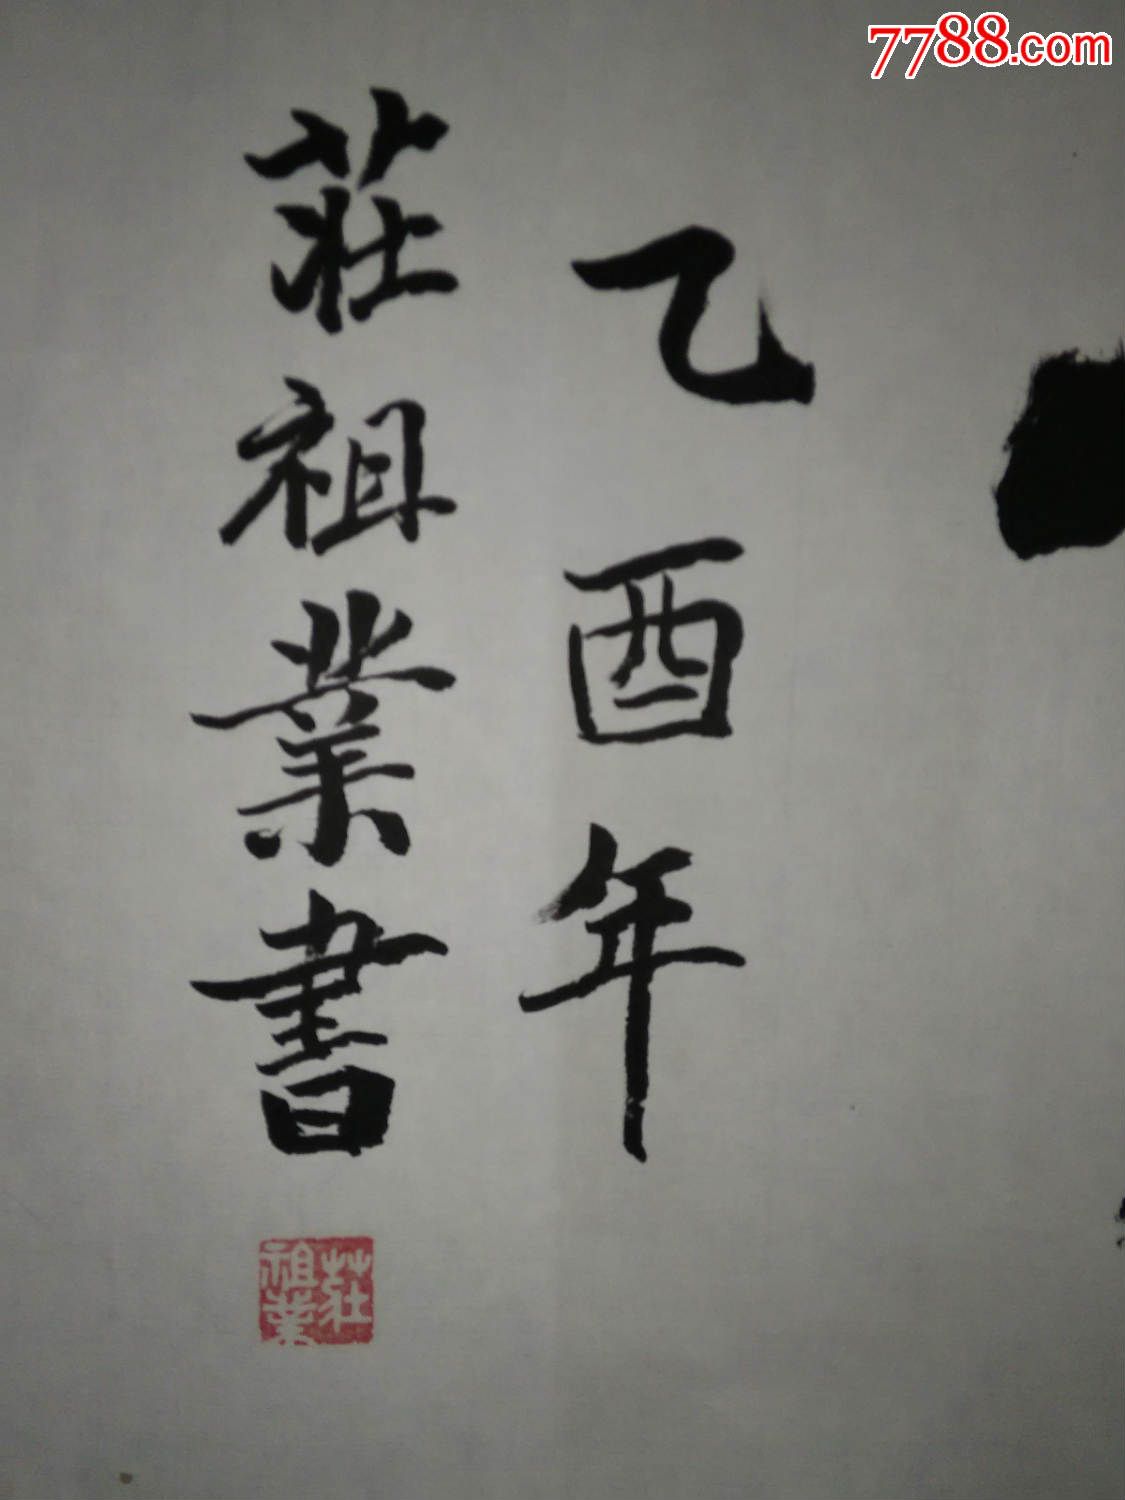 7788.com
乙酉年
莊祖業書
莊祖業